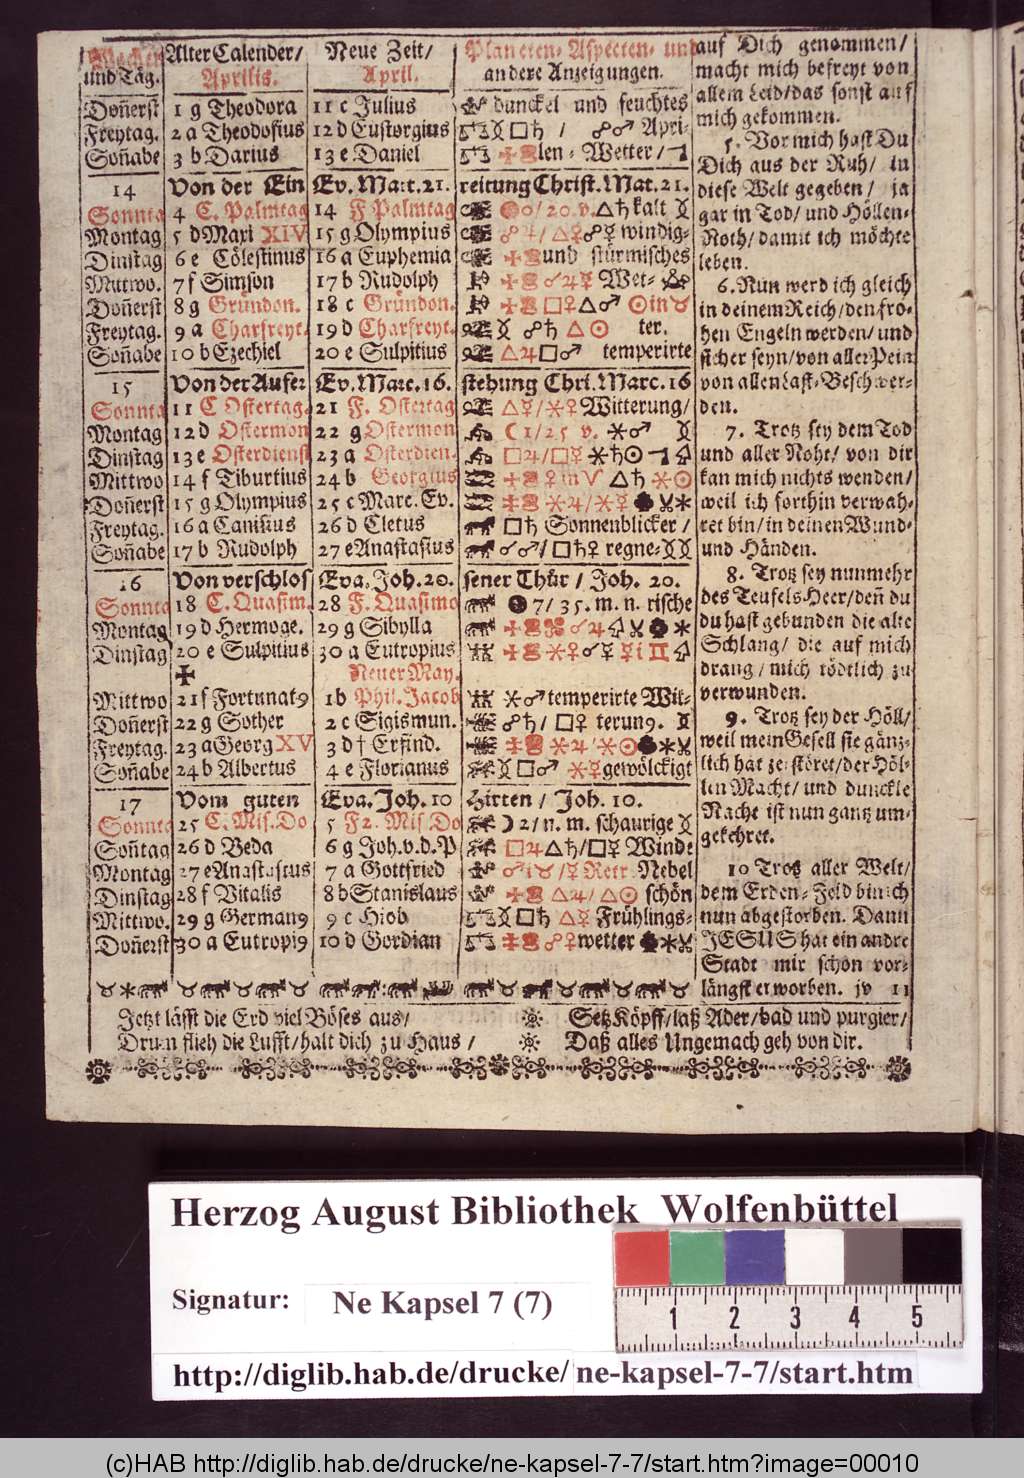 Wochen Alter Calender/ Neue Zeit/ Planeten- Aspecten- und
und Täg. Aprilis. April. andere Anzeigungen.
Doñerst 1 g Theodora 11 c Julius dunckel und feuchtes
Freytag. 2 a Theodosius 12 d Eustorgius ☿ □ ♄ / ☍ ♂ Apri-
Soñabe 3 b Darius 13 e Daniel len- Wetter /
14 Von der Ein Ev. Matt. 21. reitung Christ. Mat. 21.
Sonnta 4 C. Palmtag 14 F Palmtag 0/20.v. △ ♄ kalt
Montag 5 d Maxi XIV 15 g Olympius ☍ ♃/ △ ♀ ☍ ☿ windig-
Dinstag 6 e Cölestinus 16 a Euphemia und stürmisches
Mittwo. 7 f Simson 17 b Rudolph ☌ ♃ ☿ Wet-
Doñerst 8 g Gründon. 18 c Gründon. □ ♀ △ ♂ ☉ in ♉
Freytag. 9 a Charfreyt. 19 d Charfreyt. ☍ ♄ △ ☉ ter.
Soñabe 10 b Ezechiel 20 e Sulpitius △ ♃ □ ♂ temperirte
15 Von der Aufer Ev. Marc. 16. stehung Chri. Marc. 16
Sonnta 11 C Ostertag. 21 F. Ostertag △ ☿/ ⚹ ♀ Witterung/
Montag 12 d Ostermon 22 g Ostermon ☾ 1/25 v. ⚹ ♂
Dinstag 13 e Osterdienst 23 a Osterdien. □ ♃/ □ ☿ ⚹ ♄ ☉
Mittwo 14 f Tiburtius 24 b Georgius ♀ in ♈ △ ♄ ⚹ ☉
Doñerst 15 g Olympius 25 c Marc. Ev. ⚹ ♃/ ⚹ ☿
Freytag. 16 a Canisius 26 d Cletus □ ♄ Sonnenblicker /
Soñabe 17 b Rudolph 27 e Anastasius ☌ ♂/ □ ♄ ♀ regne-
16 Von verschlos Eva. Joh. 20. sener Thür / Joh. 20.
Sonnta 18 C. Quasim. 28 F. Quasimo 7/35. m. n. rische
Montag 19 d Hermoge. 29 g Sibylla ☌ ♃
Dinstag 20 e Sulpitius 30 a Eutropius ⚹ ♀ ☌ ☿ ☿ i ♊
✠ Neuer May.
Mittwo 21 f Fortunat9 1 b Phil. Jacob ⚹ ♂ temperirte Wit-
Doñerst 22 g Sother 2 c Sigismun. ☍ ♄/ □ ♀ terung.
Freytag. 23 a Georg XV 3 d † Erfind. ⚹ ♃ ⚹ ☉
Soñabe 24 b Albertus 4 e Florianus □ ♂ ⚹ ☿ gewölckigt
17 Vom guten Eva. Joh. 10 Hirten / Joh. 10.
Sonnta 25 C. Mis. Do 5 F 2. Mis. Do ☽ 2/ n. m. schaurige
Soñtag 26 d Beda 6 g Joh. v. d. P □ ♃ △ ♄/ □ ☿ Winde
Montag 27 e Anastasius 7 a Gottfried ♂ i ♉/ ☿ Retr. Nebel
Dinstag 28 f Vitalis 8 b Stanislaus △ ♃/ △ ☉ schön
Mittwo. 29 g German9 9 c Hiob □ ♄ △ ☿ Frühlings-
Doñerst 30 a Eutropi9 10 d Gordian ☍ ♀ wetter
auf Dich genommen/
macht mich befreyt von
allem Leid/das sonst auf
mich gekommen.
5. Vor mich hast Du
Dich aus der Ruh/ in
diese Welt gegeben / ja
gar in Tod/ und Höllen-
Noth/ damit ich möchte
leben.
6. Nun werd ich gleich
in deinem Reich/ den fro-
hen Engeln werden/ und
sicher seyn/von aller Pein
von allen Last-Beschwer-
den.
7. Trotz sey dem Tod
und aller Noht/ von dir
kan mich nichts wenden/
weil ich forthin verwah-
ret bin/ in deinen Wund-
und Händen.
8. Trotz sey nunmehr
des Teufels Heer/deñ du
du hast gebunden die alte
Schlang/ die auf mich
drang / mich tödtlich zu
verwunden.
9. Trotz sey der Höll/
weil mein Gesell sie gäntz-
lich hat zerstöret/der Höl-
len Macht/ und dunckle
Nacht ist nun gantz um-
gekehret.
10 Trotz aller Welt/
dem Erden-Feld bin ich
nun abgestorben. Dann
JESUS hat ein andre
Stadt mir schon vor-
längst erworben. jv 11
Jetzt lässt die Erd viel Böses aus/
Drum flieh die Lufft/halt dich zu Haus /
Setz Köpff/laß Ader/bad und purgier/
Daß alles Ungemach geh von dir.
Herzog August Bibliothek Wolfenbüttel
Signatur: Ne Kapsel 7 (7)
1 2 3 4 5
http://diglib.hab.de/drucke/ne-kapsel-7-7/start.htm
(c)HAB http://diglib.hab.de/drucke/ne-kapsel-7-7/start.htm?image=00010